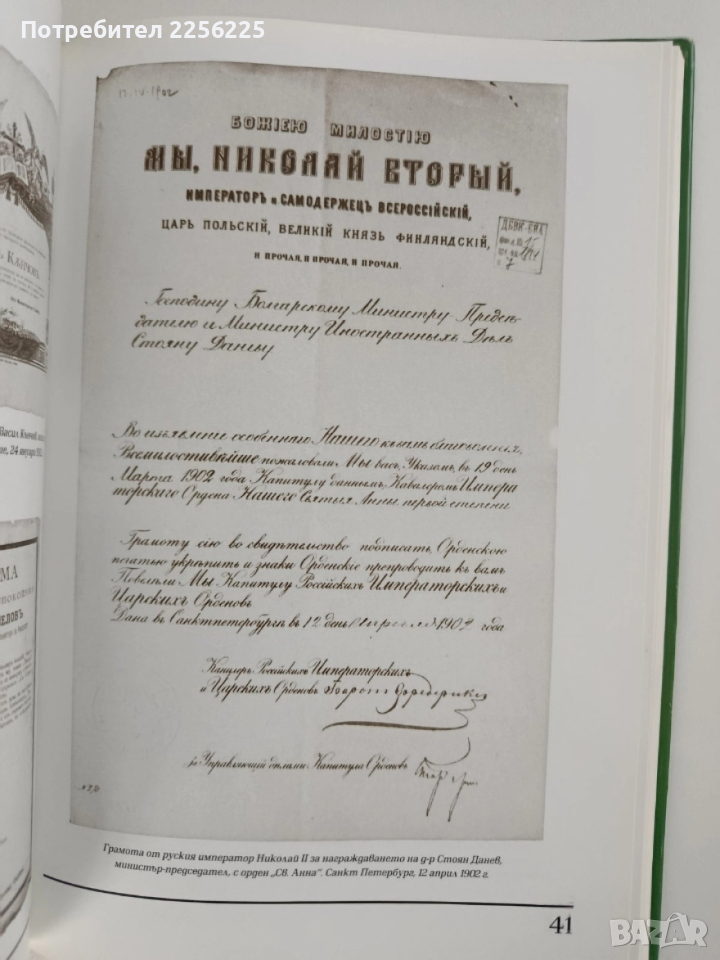 Потребител 2256225
17.IV.1902
БОЖІЕЮ МИЛОСТІЮ
МЫ, НИКОЛАЙ ВТОРЫЙ,
ИМПЕРАТОРЪ и САМОДЕРЖЕЦЪ ВСЕРОССІЙСКІЙ,
ЦАРЬ ПОЛЬСКІЙ, ВЕЛИКІЙ КНЯЗЬ ФИНЛЯНДСКІЙ,
И ПРОЧАЯ, И ПРОЧАЯ, И ПРОЧАЯ.
7
Господину Болгарскому Министру Предсѣ-
дателю и Министру Иностранныхъ Дѣлъ
Стояну Даневу
Во изъявленіе особеннаго Нашего къ вамъ благоволенія,
Всемилостивѣйше пожаловали Мы васъ, Указомъ, въ 19 день
Марта 1902 года Капитулу даннымъ, Кавалеромъ Импера
торскаго Ордена Нашего Святыя Анны первой степени
Грамоту сію во свидѣтельство подписать, Орденскою
печатью укрѣпить и знаки Орденскіе препроводить къ вамъ
Повелѣли Мы Капитулу Россійскихъ Императорскихъ и
Царскихъ Орденовъ
Дана въ Санктпетербургѣ въ 12 день Апрѣля 1902 года
Канцлеръ Россійскихъ Императорскихъ
и Царскихъ Орденовъ Баронъ Фредериксъ
Управляющій дѣлами Капитула Орденовъ
Грамота от руския император Николай II за награждаването на д-р Стоян Данев,
министър-председател, с орден „Св. Анна“. Санкт Петербург, 12 април 1902 г.
41
BAZAR